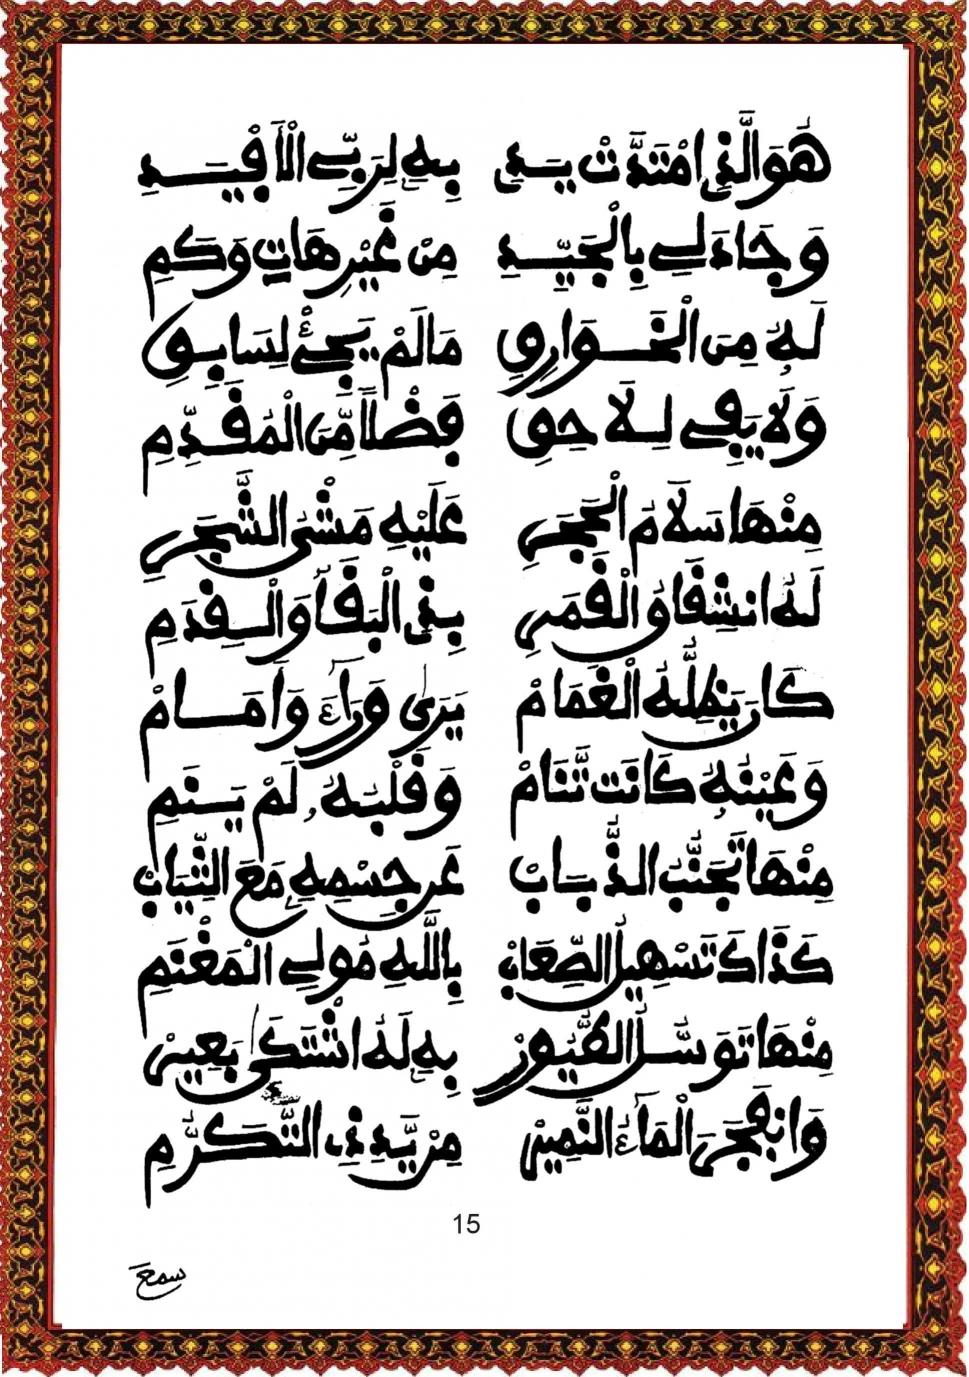 هُوَ الَّذِي امْتَدَّتْ يَدِي بِهِ لِرَبِّي الْأَبَدِي
وَجَادَ لِي بِالْجَيِّدِ مِنْ غَيْرِ هَاتِ وَكَمِ
لَهُ مِنَ الْخَوَارِقِ مَا لَمْ يَجِئْ لِسَابِقِ
وَلَا يَفِي لِلَاحِقِ فَضْلًا مِّنَ الْمُقَدِّمِ
مِنْهَا سَلَامُ الْحَجَرِ عَلَيْهِ مَشْيُ الشَّجَرِ
لَهُ انشِقَاقُ الْقَمَرِ بِذِي الْبَقَا وَالْقِدَمِ
كَانَ يُظِلُّهُ الْغَمَامْ يَرَى وَرَاءَ وَأَمَامْ
وَعَيْنُهُ كَانَت تَّنَامْ وَقَلْبُهُ لَمْ يَنَمِ
مِنْهَا تَجَنُّبُ الذُّبَابْ عَن جِسْمِهِ مَعَ الثِّيَابْ
كَذَاكَ تَسْهِيلُ الصِّعَابْ بِاللَّهِ مُولِي الْمَغْنَمِ
مِنْهَا تَوَسُّلُ الطُّيُورْ بِهِ لَهُ اشْتَكَى بَعِيرْ
وَانفَجَرَ الْمَاءُ النَّمِيرْ مِنْ يَدِ ذِي التَّكَرُّمِ
15